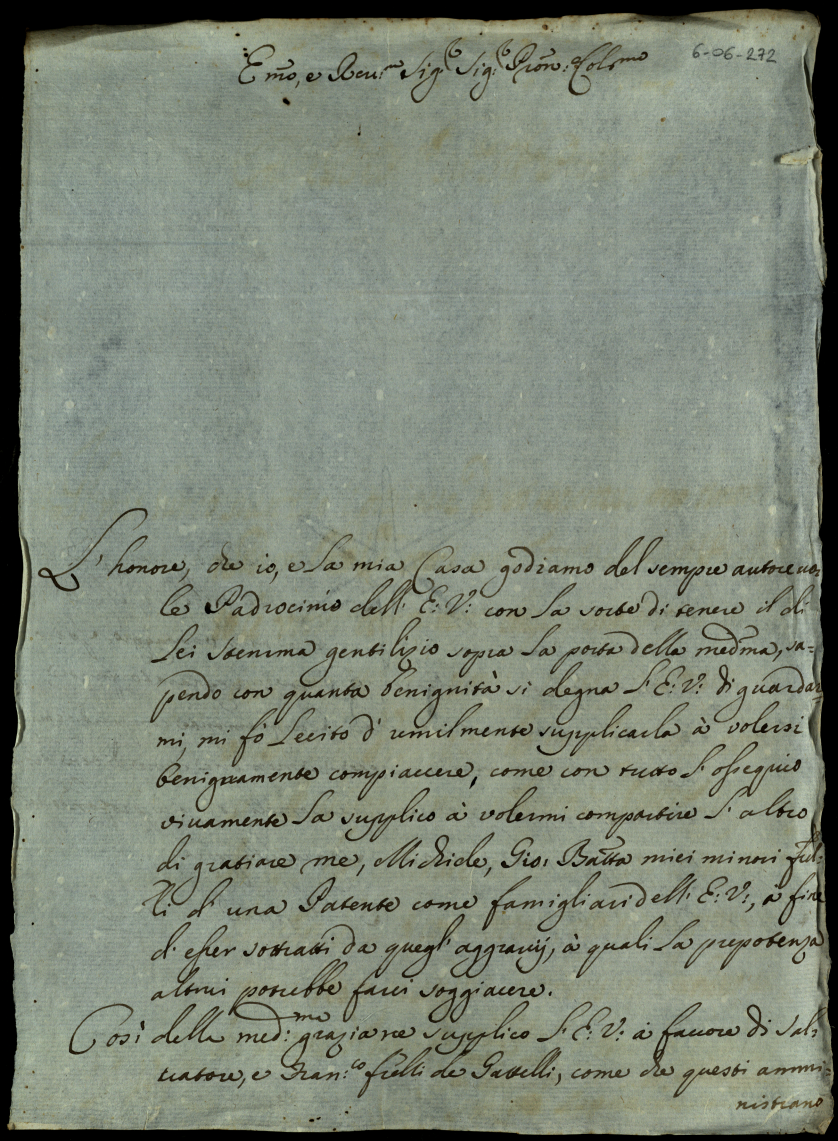 6-06-272
Emo, e Reu:mo Sig:r Sig:r Pron: Colmo
L'honore, che io, e la mia Casa godiamo del sempre autoreuo=
le Padrocinio dell' E: V: con la sorte di tenere il di
Lei stemma gentilizio sopra la porta della medma, sa=
pendo con quanta benignità si degna l' E: V: di guardar=
mi, mi fò lecito d' umilmente supplicarla à volersi
benignamente compiacere, come con tutto l' ossequio
viuamente la supplico à volermi compartire l' altro
di gratiare me, Michiele, Gio: Batta miei minori frel=
li d' una Patente come famigliari dell' E: V:, a fine
d' esser sottratti da quegl' aggrauij, à quali la prepotenza
altrui potrebbe farci soggiacere.
Così della med:ma grazia ne supplico l' E: V: à fauore di Sal=
uatore, e Fran:co frelli de Gattelli, come che questi ammi=
nistrano